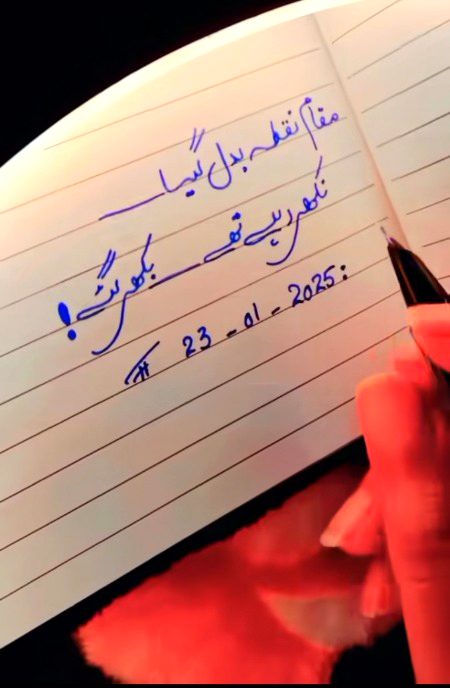 مقام نقطہ بدل گیا
نکھر رہے تھے ــــ بکھر گئے!
23-01-2025: